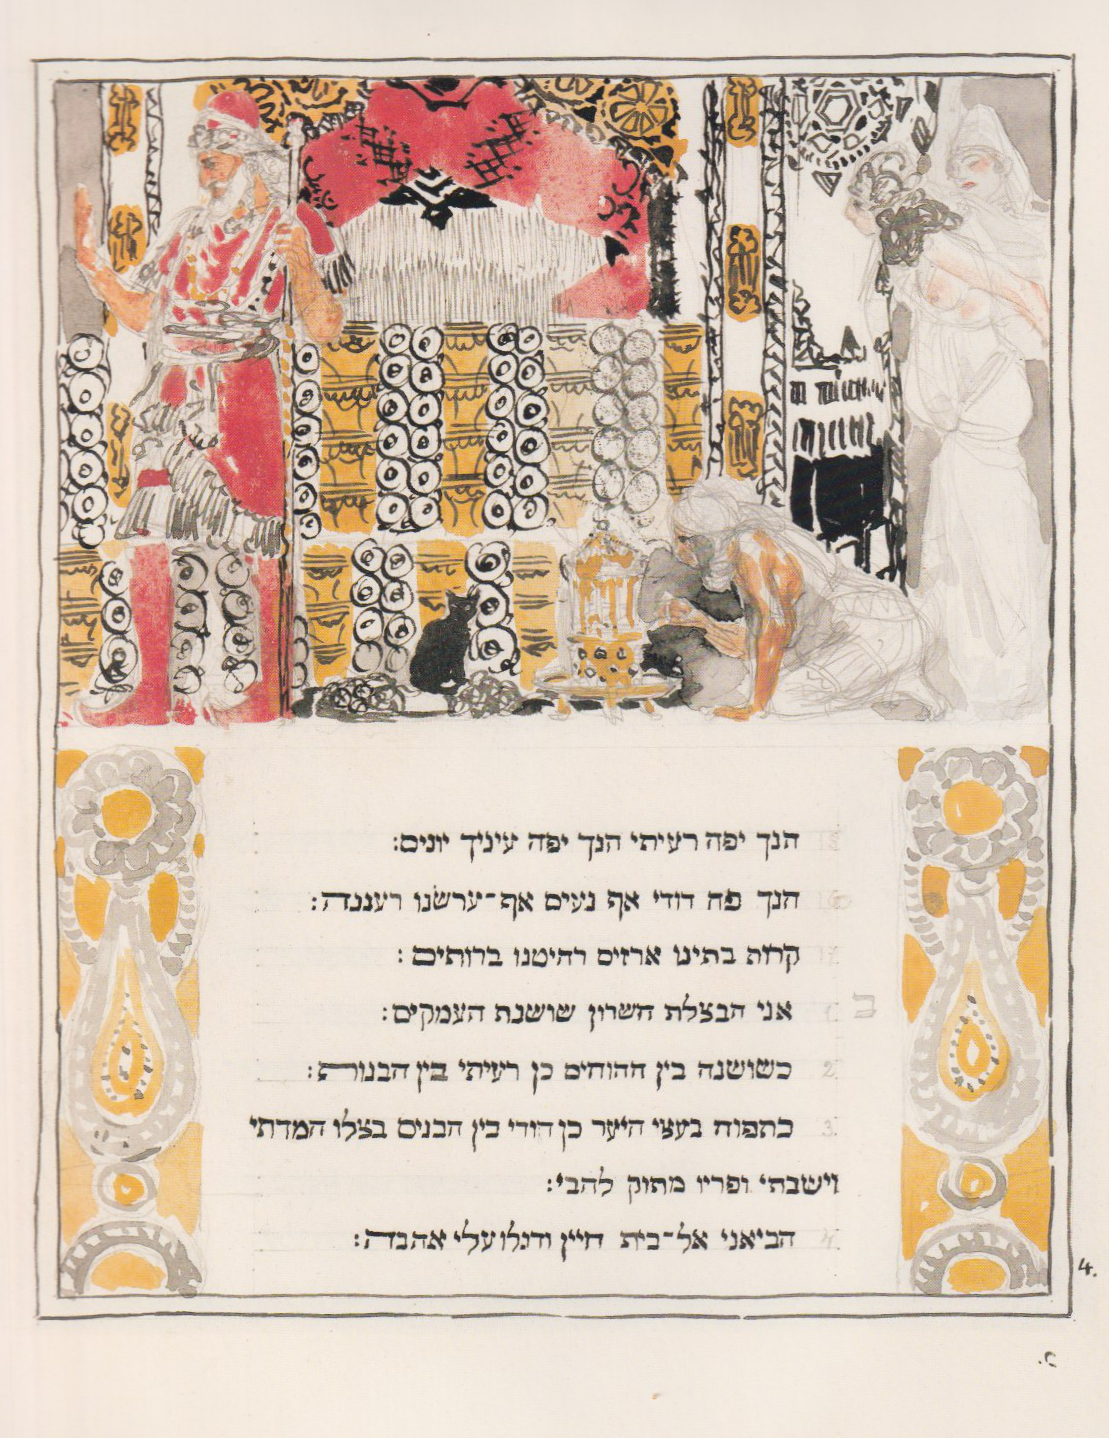 הנך יפה רעיתי הנך יפה עיניך יונים:
הנך פה דודי אף נעים אף־ערשׂנו רעננה:
קרות בתינו ארזים רהיטנו ברותים:
ב
1. אני הבצלת השרון שושנת העמקים:
2. כשושנה בין החוחים כן רעיתי בין הבנות:
3. כתפוח בעצי היער כן דודי בין הבנים בצלו חמדתי
וישבתי ופריו מתוק לחכי:
4. הביאני אל־בית היין ודגלו עלי אהבה:
4.